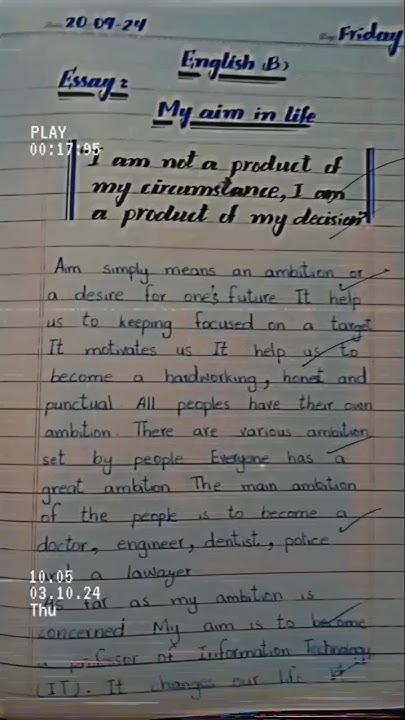 20-09-24
Friday
English (B)
Essay:
My aim in life
PLAY
00:17:95
I am not a product of
my circumstance, I am
a product of my decision
Aim simply means an ambition or
a desire for one's future It help
us to keeping focused on a target
It motivates us It help us to
become a hardworking, honest and
punctual All peoples have their own
ambition. There are various ambition
set by people Everyone has a
great ambtion The main ambition
of the people is to become a
doctor, engineer, dentist, police
a lawayer
10:05
03.10.24
Thu
As far as my ambition is
concerned My aim is to become
a professor of Information Technology
(IT). It changes our life